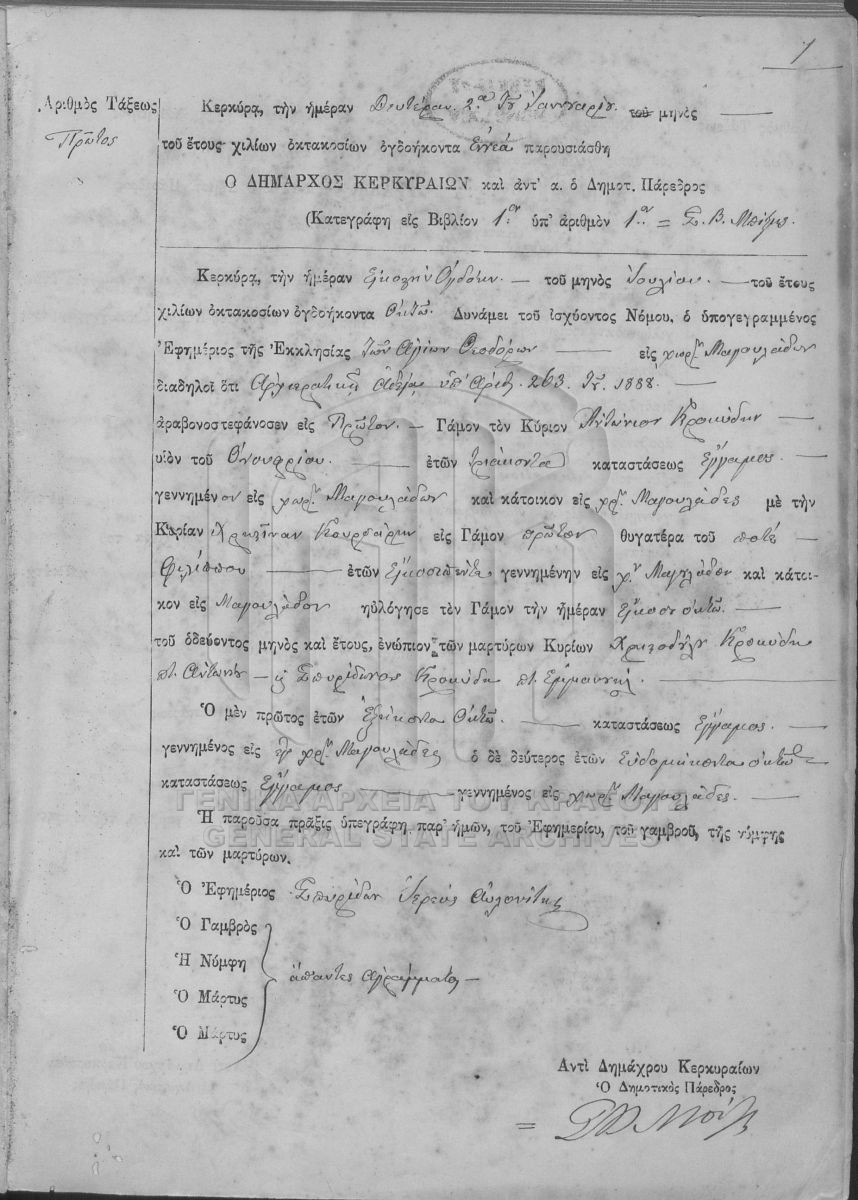 1
Ἀριθμὸς Τάξεως
Πρῶτος
Κερκύρᾳ, τὴν ἡμέραν Δευτέραν 2αν τοῦ Ἰαννουαρίου τοῦ μηνὸς
τοῦ ἔτους χιλίων ὀκτακοσίων ὀγδοήκοντα Ἐννέα παρουσιάσθη
Ο ΔΗΜΑΡΧΟΣ ΚΕΡΚΥΡΑΙΩΝ καὶ ἀντ' α. ὁ Δημοτ. Πάρεδρος
(Κατεγράφη εἰς Βιβλίον 1ον ὑπ' ἀριθμὸν 1ον =
Κερκύρᾳ, τὴν ἡμέραν Εἰκοστὴν Ὀγδόην — τοῦ μηνὸς Ἰουλίου — τοῦ ἔτους
χιλίων ὀκτακοσίων ὀγδοήκοντα Ὀκτώ. Δυνάμει τοῦ ἰσχύοντος Νόμου, ὁ ὑπογεγραμμένος
Ἐφημέριος τῆς Ἐκκλησίας τῶν Ἁγίων Θεοδώρων — εἰς χωρ. Μαγουλάδων
διαδηλοῖ ὅτι Ἀρχιερατικῇ Ἀδείᾳ ὑπ' Ἀριθ. 263 τοῦ 1888 —
ἀραβονοστεφάνοσεν εἰς Πρῶτον — Γάμον τὸν Κύριον Ἀντώνιον Κροκύδην —
υἱὸν τοῦ Ὀνουφρίου — ἐτῶν τριάκοντα καταστάσεως Ἔγγαμος —
γεννημένον εἰς χωρ. Μαγουλάδων καὶ κάτοικον εἰς χωρ. Μαγουλάδες μὲ τὴν
Κυρίαν εἰς Γάμον πρῶτον θυγατέρα τοῦ ποτὲ
Φιλίππου — ἐτῶν Εἰκοσιπέντε γεννημένην εἰς χν Μαγουλάδων καὶ κάτοι-
κον εἰς Μαγουλάδων ηὐλόγησε τὸν Γάμον τὴν ἡμέραν Εἴκοσι ὀκτώ —
τοῦ ὁδεύοντος μηνὸς καὶ ἔτους, ἐνώπιον τῶν μαρτύρων Κυρίων Χριστοδούλου Κροκύδη
πτ. Ἀντωνίου — καὶ Σπυρίδωνος Κροκύδη πτ. Ἐμμανουήλ —
Ὁ μὲν πρῶτος ἐτῶν Ἑξήκοντα Ὀκτώ — καταστάσεως Ἔγγαμος —
γεννημένος εἰς χωρ. Μαγουλάδες ὁ δὲ δεύτερος ἐτῶν Ἑυδομήκοντα ὀκτώ
καταστάσεως Ἔγγαμος — γεννημένος εἰς χωρ. Μαγουλάδες —
ΓΕΝΙΚΑ ΑΡΧΕΙΑ ΤΟΥ ΚΡΑΤΟΥΣ
GENERAL STATE ARCHIVES
Ἡ παροῦσα πρᾶξις ὑπεγράφη παρ' ἡμῶν, τοῦ Ἐφημερίου, τοῦ γαμβροῦ, τῆς νύμφης
καὶ τῶν μαρτύρων.
Ὁ Ἐφημέριος Σπυρίδων Ἱερεὺς Αὐλωνίτης
Ὁ Γαμβρὸς
Ἡ Νύμφη
ἅπαντες ἀγράμματοι —
Ὁ Μάρτυς
Ὁ Μάρτυς
Αντὶ Δημάχρου Κερκυραίων
Ὁ Δημοτικὸς Πάρεδρος